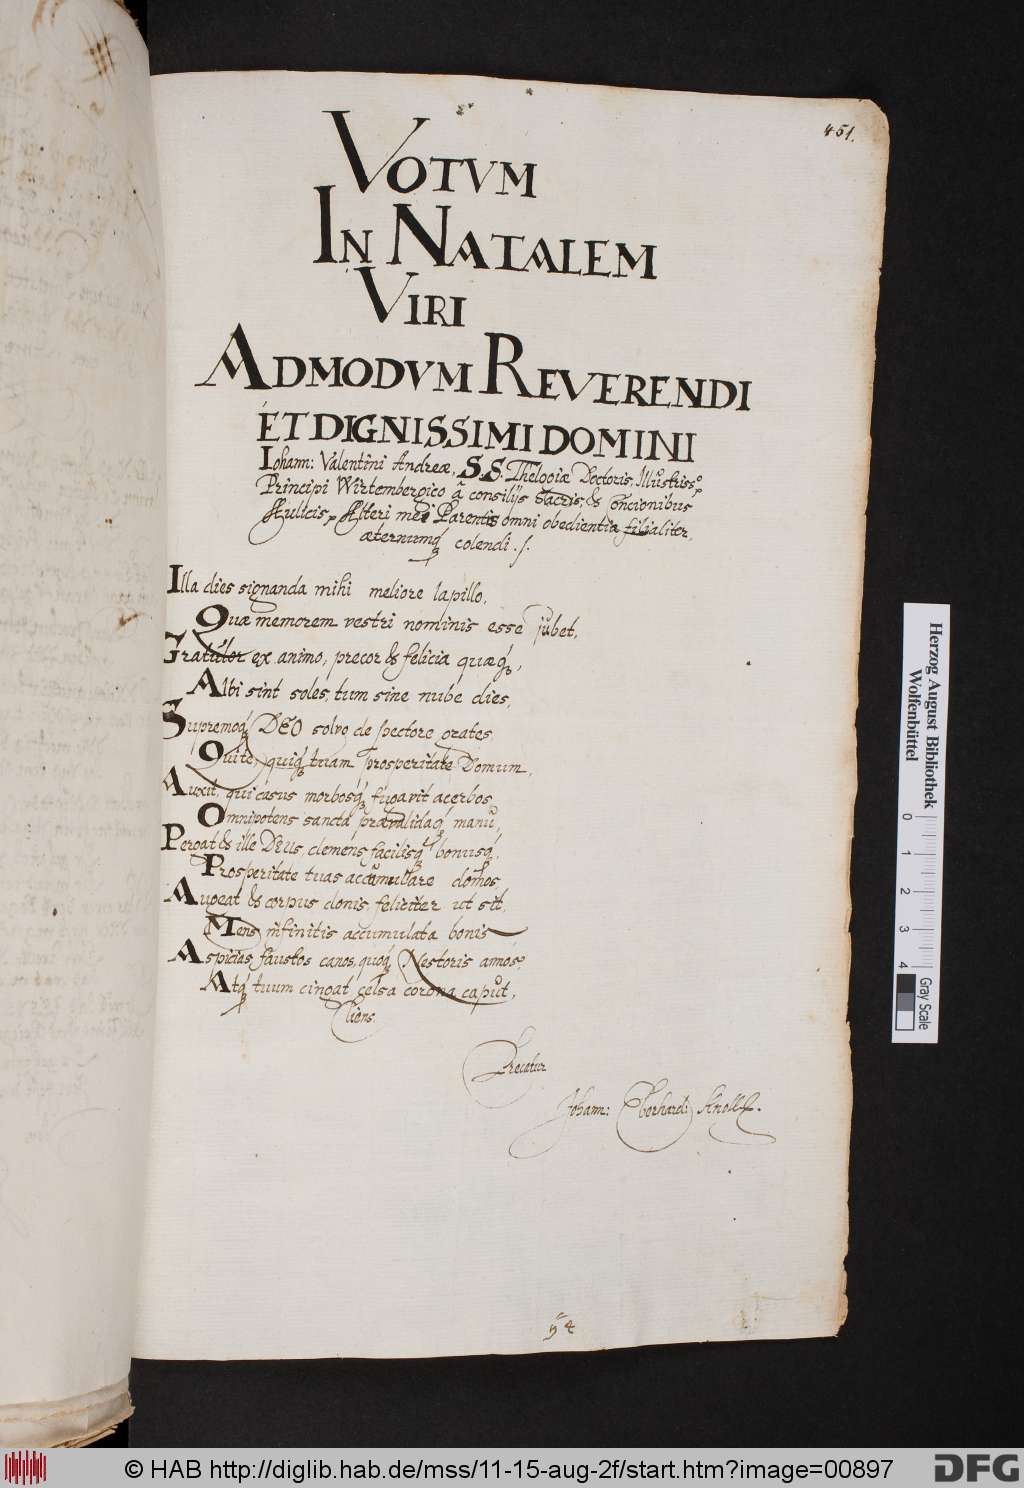 451.
VOTVM
IN NATALEM
VIRI
ADMODVM REVERENDI
ET DIGNISSIMI DOMINI
Iohann: Valentini Andreæ, S.S. Thelogiæ Doctoris, Illustriss.
Principi Wirtembergico â consilijs sacris, & Concionibus
Aulicis, Alteri mei Parentis omni obedientia filialiter,
æternumq; colendi ./.
Illa dies signanda mihi meliore lapillo,
Quæ memorem vestri nominis esse jubet,
Gratulor ex animo, precor & felicia quæq;,
Albi sint soles, tum sine nube dies,
Supremoq; DEO solvo de pectore grates,
Qui te, quiq; tuam prosperitate Domum,
Auxit, qui casus morbosq; fugavit acerbos
Omnipotens sancta prævalidaq; manu,
Pergat & ille Deus, clemens facilisq; bonusq;,
Prosperitate tuas accumulare domos,
Augeat & corpus donis, feliciter ut sit,
Mens infinitis accumulata bonis
Aspicias faustos canos, quoq; Nestoris annos,
Atq; tuum cingat celsa corona caput,
Cliens
Precatur
Johann: Eberhard: Knoll.
4
Herzog August Bibliothek
Wolfenbüttel
0 1 2 3 4
Gray Scale
© HAB http://diglib.hab.de/mss/11-15-aug-2f/start.htm?image=00897
DFG